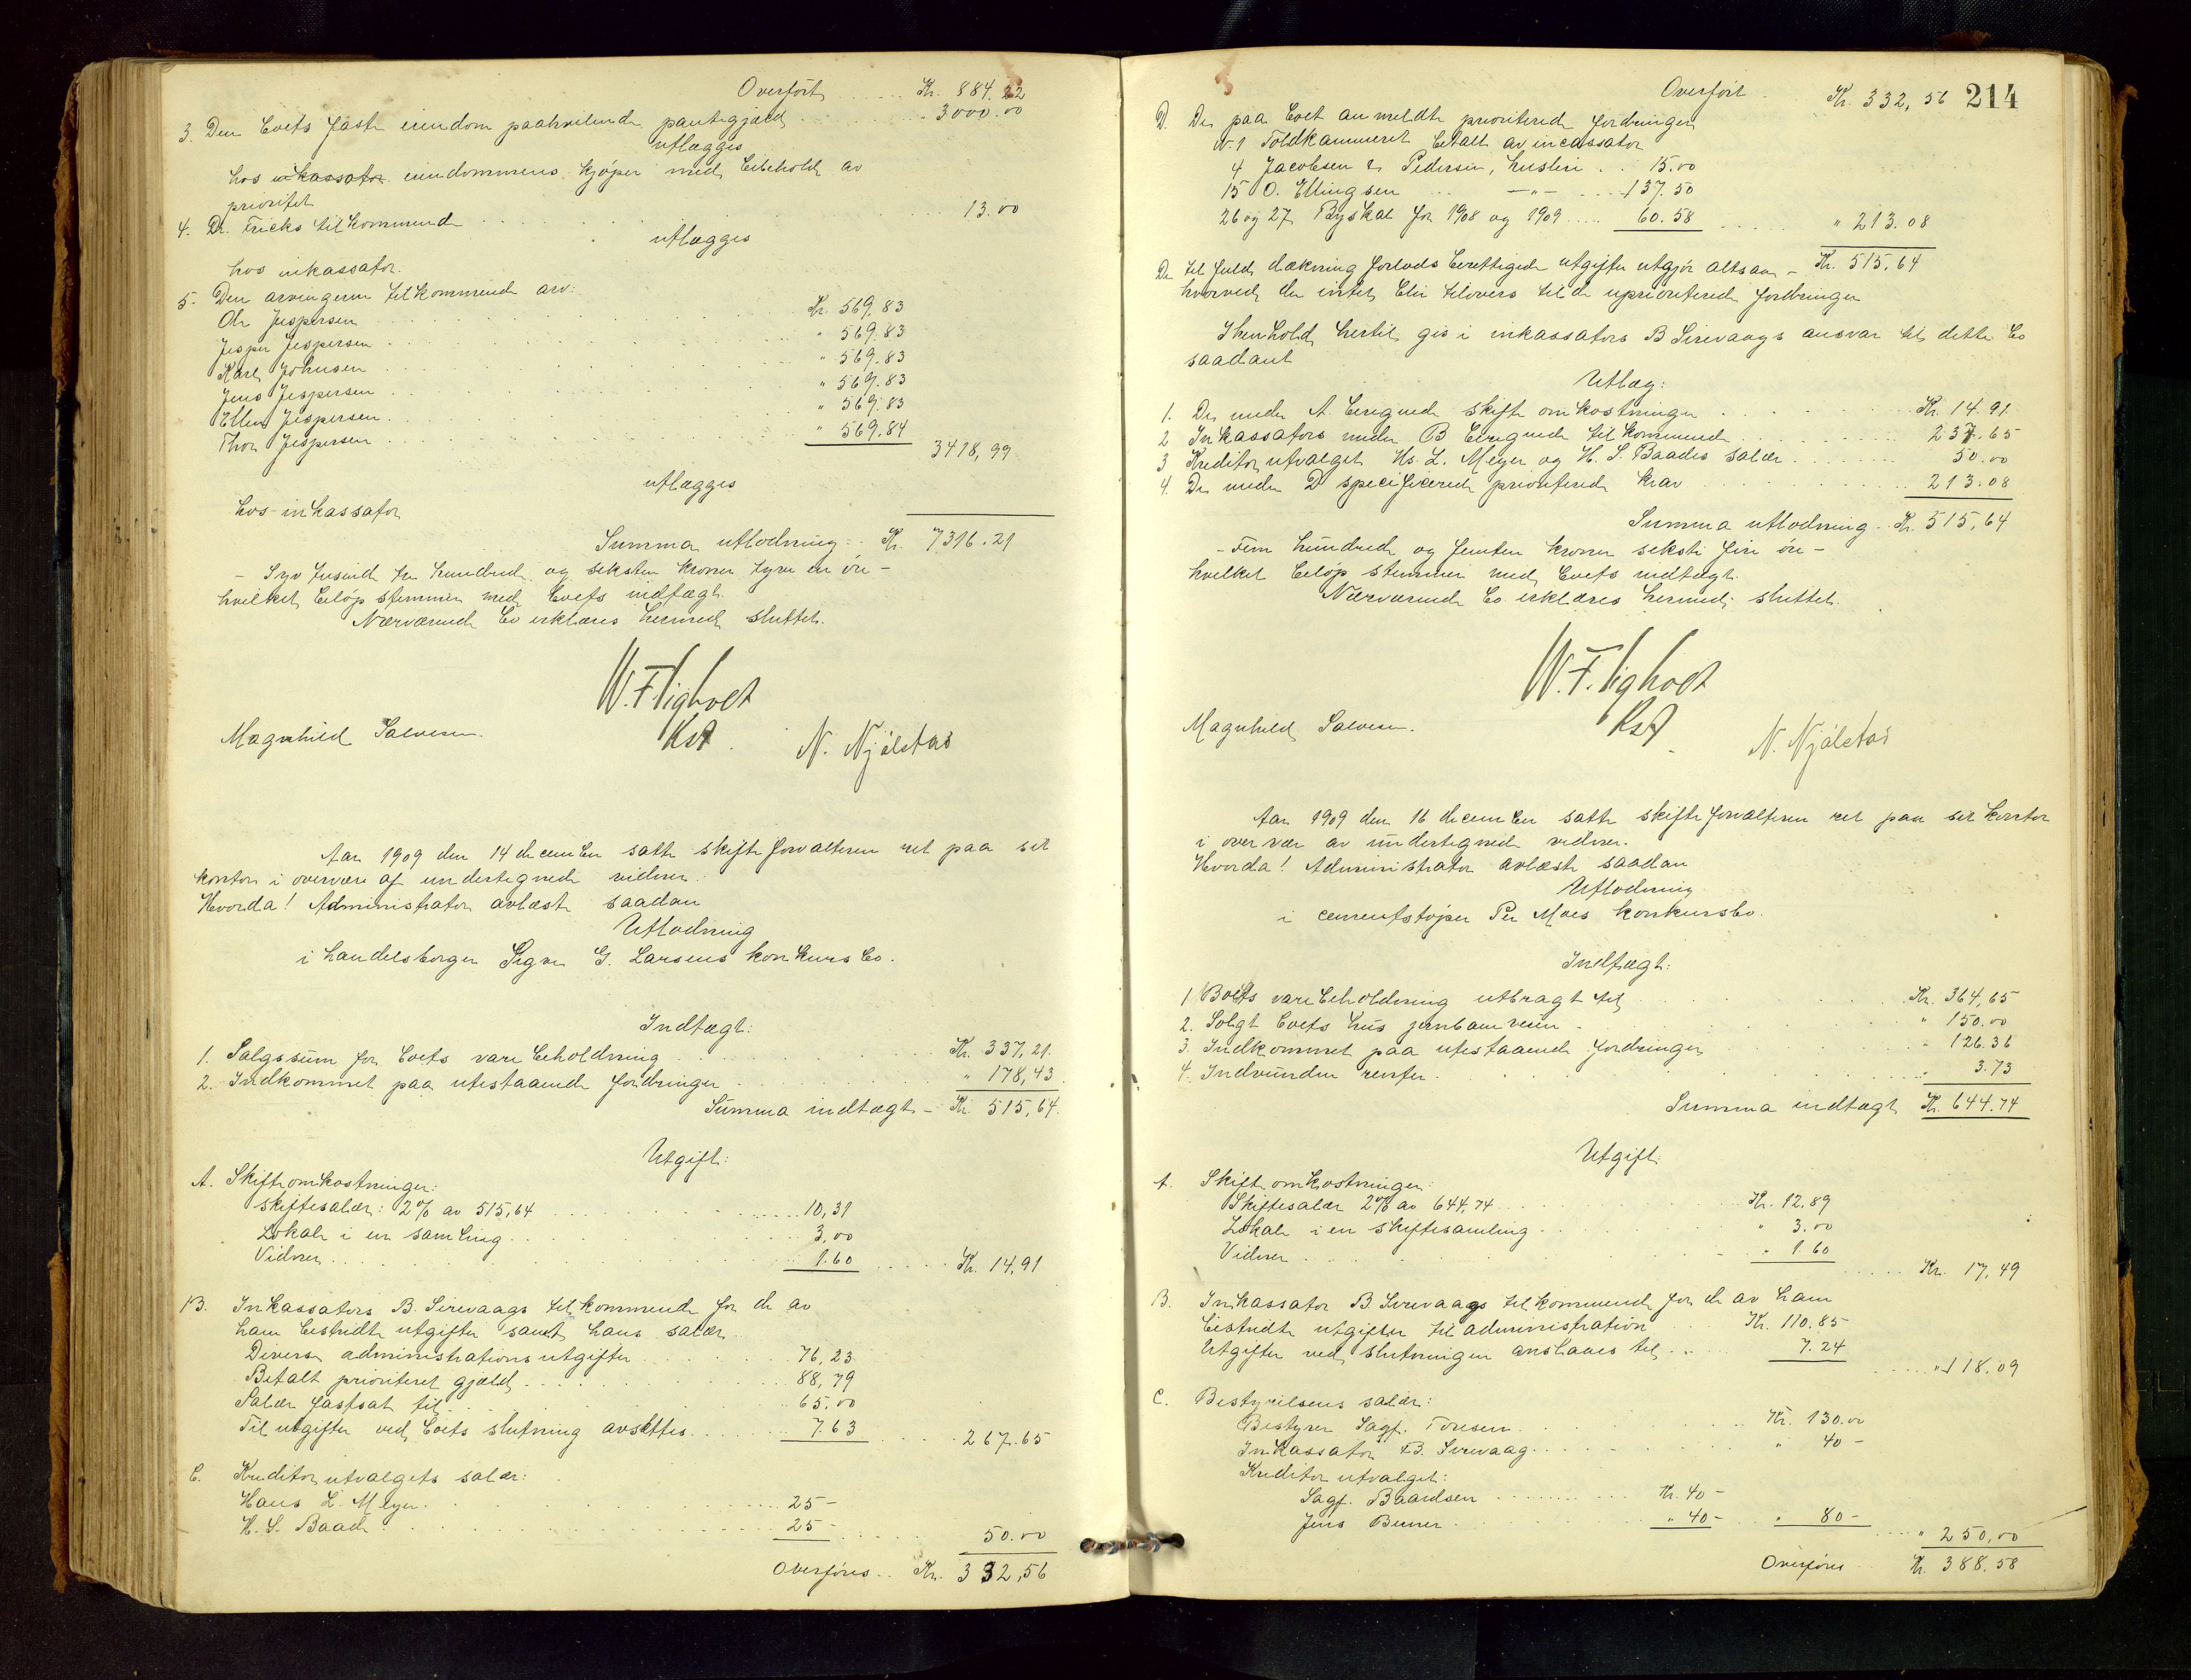 Overført ...... Kr. 884.22
3. Den boets faste eiendom paahvilende pantegjæld ........ 3000.00
utlægges
hos inkassator eiendommens kjøper med bibehold av
prioritet
4. Dr. Fricks tilkommende ........ 13.00
utlægges
hos inkassator.
5. Den arvingerne tilkommende arv:
Ole Jespersen ........ Kr. 569,83
Jesper Jespersen ........ " 569.83
Karl Johnsen ........ " 569.83
Jens Jespersen ........ " 569.83
Ellen Jespersen ........ " 569.83
Thor Jespersen ........ " 569.84
3418,99
utlægges
hos inkassator
Summa utlodning: Kr. 7316.21
- Syv tusind tre hundrede og seksten kroner tyve en øre -
hvilket beløp stemmer med boets indtægt.
Nærværende bo erklæres hermed sluttet.
Magnhild Salvesen. Kst N. Njålstad
Aar 1909 den 14 december satte skifteforvalteren ret paa sit
kontor i overvær af undertegnede vidner.
Hvorda! Administrator avlæste saadan
Utlodning
i handelsborger Sigv. G. Larsens konkursbo.
Indtægt:
1. Salgssum for boets varebeholdning ........ Kr. 337,21.
2. Indkommet paa utestaaende fordringer ........ " 178,43
Summa indtægt - Kr. 515,64.
Utgift:
A. Skifteomkostninger:
Skiftesalær: 2% av 515,64 ........ 10,31
Lokale i en samling ........ 3,00
Vidner ........ 1.60 ..... Kr. 14,91
B. Inkassators B. Sirevaags tilkommende for de av
ham bestridte utgifter samt hans salær
Diverse administrationsutgifter ........ 76,23
Betalt prioritert gjæld ........ 88,79
Salær fastsat til ........ 65.00
Til utgifter ved boets slutning avsættes ........ 7.63 .... 267.65
C. Kreditorutvalgets salær:
Hans L. Meyer ........ 25 -
H. S. Baade ........ 25 - ..... 50.00
Overføres .. Kr. 332,56
Overført Kr. 332,56 214
D. De paa boet anmeldte prioriterede fordringer
N. 1 Toldkammeret betalt av incassator
4 Jacobsen & Pedersen, husleie .. 15.00
15 O. Ellingsen ... —"— .... 137.50
26 og 27 Byskat for 1908 og 1909 .... 60.58 ..... " 213.08
De til fuld dækning forlods berettigede utgifter utgjør altsaa - Kr. 515,64
hvorved der intet blir tilovers til de uprioriterede fordringer
I henhold hertil gis i inkassators B Sirevaags ansvar til dette bo
saadant
Utlæg:
1. De under A. beregnede skifteomkostninger ........ Kr. 14.91
2 Inkassators under B beregnede tilkommende ........ 237.65
3 Kreditorutvalget Hs. L. Meyer og H. S. Baades salær ........ 50.00
4. De under D specificerede prioriterede krav ........ 213.08
Summa utlodning .. Kr. 515,64
- Fem hundrede og femten kroner seksti fire øre -
hvilket beløp stemmer med boets indtægt.
Nærværende bo erklæres hermed sluttet.
Magnhild Salvesen. Kst N. Njålstad
Aar 1909 den 16 december satte skifteforvalteren ret paa sit kontor
i overvær av undertegnede vidner.
Hvorda! Administrator avlæste saadan
Utlodning
i cementstøper Per Moes konkursbo.
Indtægt:
1. Boets varebeholdning utbragt til ........ Kr. 364,65
2. Solgt boets hus ........ " 150.00
3. Indkommet paa utestaaende fordringer ........ " 126.36
4. Indvundne renter ........ 3.73
Summa indtægt Kr. 644.74
Utgift:
A. Skifteomkostninger:
Skiftesalær 2% av 644,74 ........ Kr. 12.89
Lokale i en skiftesamling ........ " 3.00
Vidner ........ " 1.60
.... Kr. 17,49
B. Inkassator B. Sirevaags tilkommende for de av ham
bestridte utgifter til administration ... Kr. 110.85
Utgifter ved slutningen anslaaes til ... 7.24
.... " 118.09
C. Bestyrelsens salær:
Bestyrer Sagf. Toresen ........ Kr. 130.00
Inkassator B. Sirevaag ........ " 40 -
Kreditorutvalget:
Sagf. Baardsen ........ Kr. 40 -
Jens Berner ........ " 40 - " 80 -
.... " 250,00
Overføres Kr. 388.58